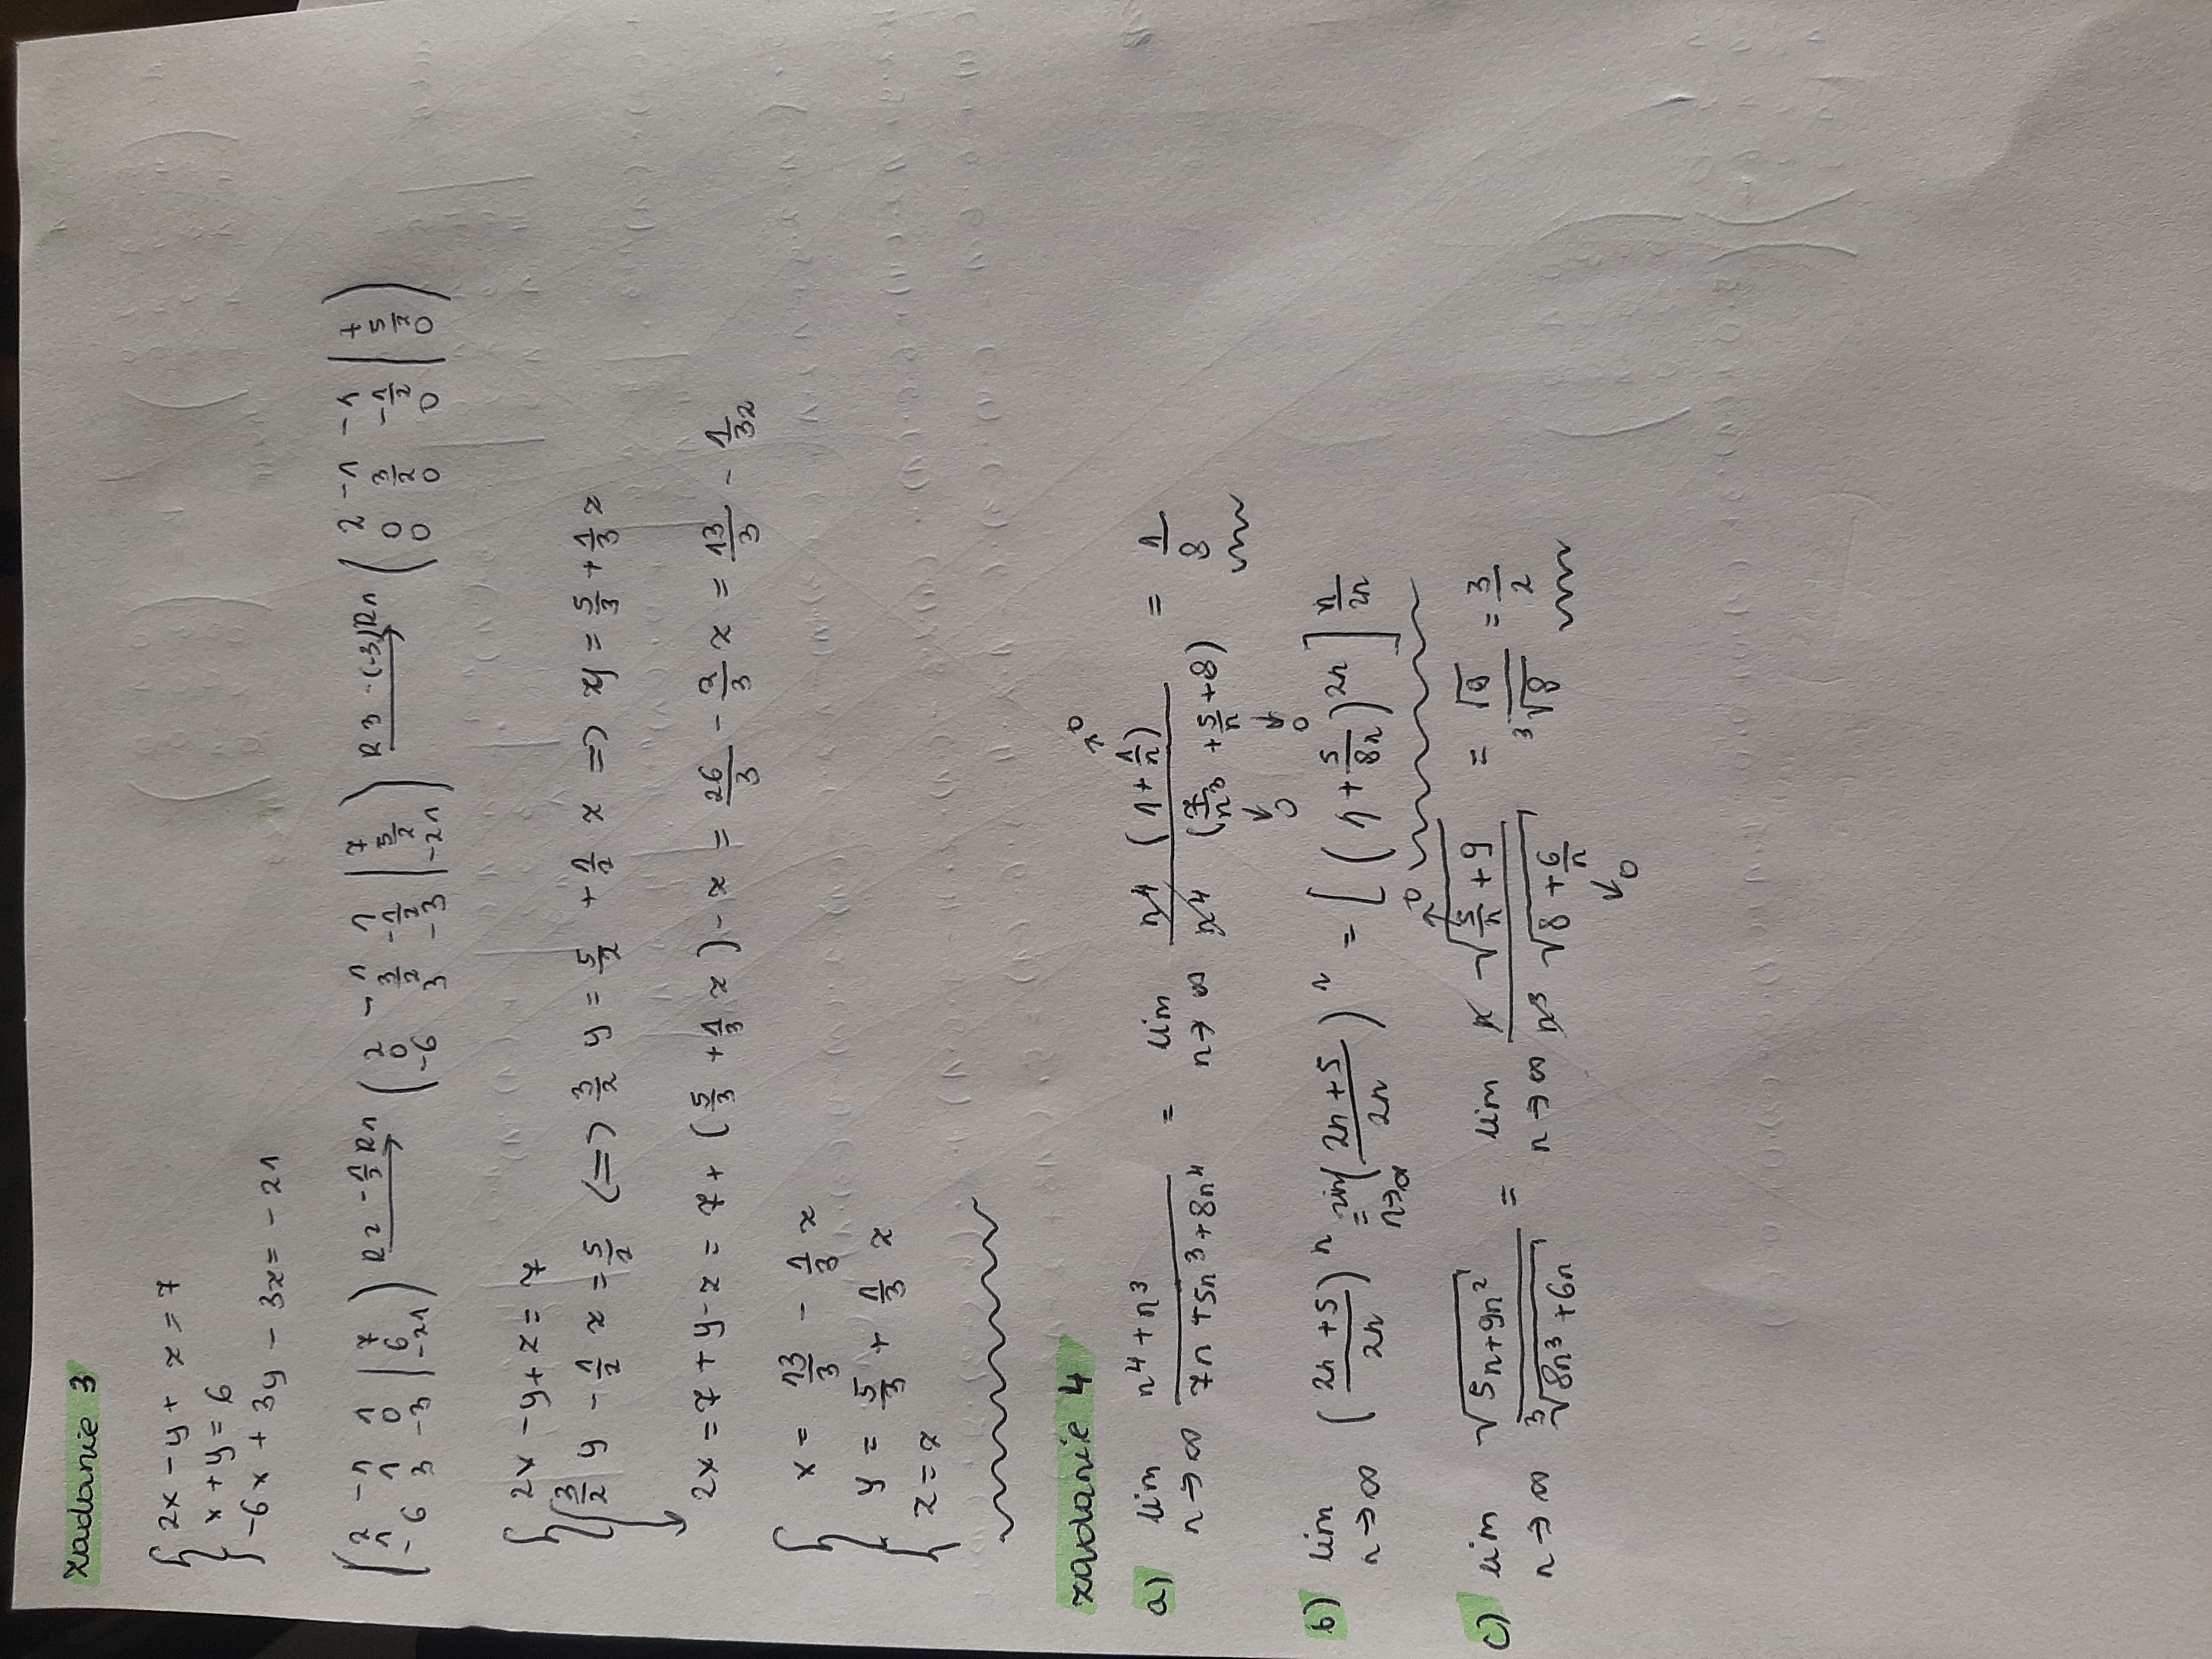 zadanie 3
{ 2x - y + z = 7
x + y = 6
-6x + 3y - 3z = -21
( 2 -1 1 | 7
1 1 0 | 6
-6 3 -3 | -21 ) R2 - 1/2 R1 → ( 2 -1 1 | 7
0 3/2 -1/2 | 5/2
-6 3 -3 | -21 ) R3 - (-3)R1 → ( 2 -1 -1 | 7
0 3/2 -1/2 | 5/2
0 0 0 | 0 )
{ 2x - y + z = 7
3/2 y - 1/2 z = 5/2 (=) 3/2 y = 5/2 + 1/2 z => y = 5/3 + 1/3 z
2x = 7 + y - z = 7 + (5/3 + 1/3 z) - z = 26/3 - 2/3 z = 13/3 - 1/3 z
{ x = 13/3 - 1/3 z
y = 5/3 + 1/3 z
z = z
zadanie 4
a) lim n→∞ (n⁴ + n³)/(7n + 5n³ + 8n⁴) = lim n→∞ n⁴ (1 + 1/n)/n⁴ (7/n³ + 5/n + 8) = 1/8
b) lim n→∞ ((2n + 5)/2n)ⁿ = lim n→∞ ((2n + 5)/2n)ⁿ = [(1 + 5/8n)2n] n/2n
c) lim n→∞ √(5n + 9n²)/³√(8n³ + 6n) = lim n→∞ n √(5/n + 9)/n³ √(8 + 6/n) = √9/³√8 = 3/2